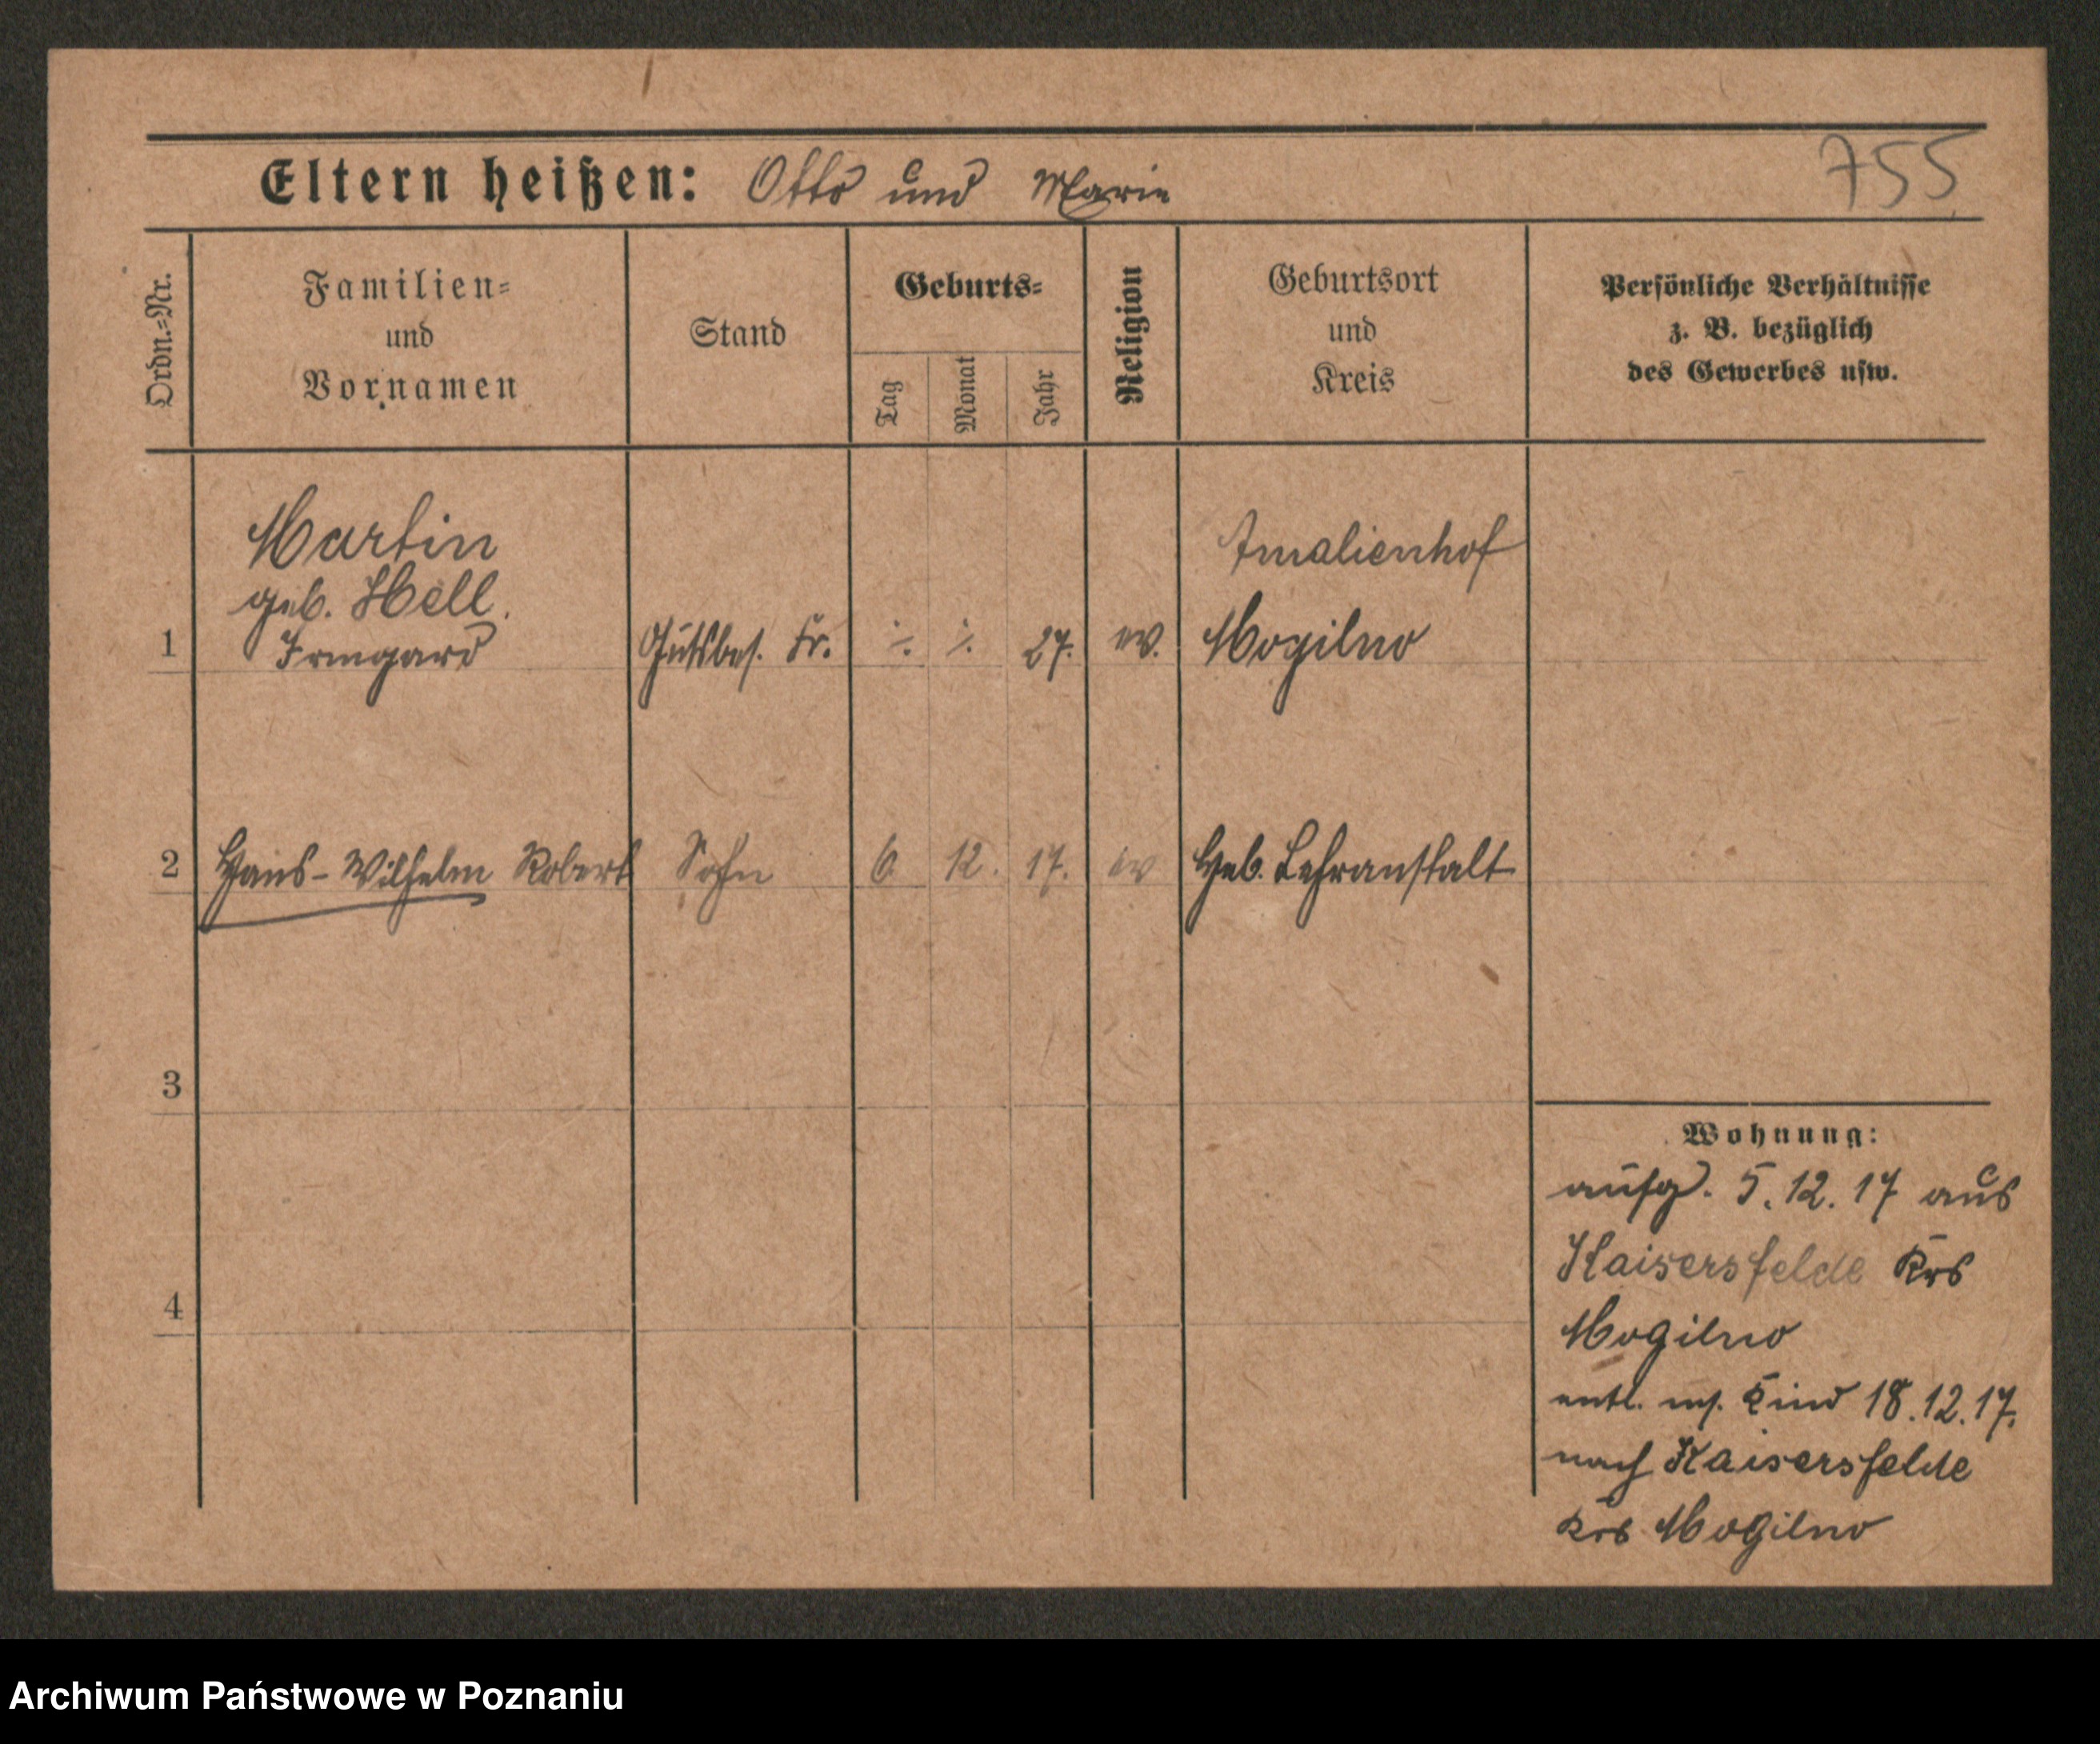 Eltern heißen: Otto und Marie
755
Ordn.=Nr.
Familien=
und
Vornamen
Stand
Geburts=
Tag
Monat
Jahr
Religion
Geburtsort
und
Kreis
Persönliche Verhältnisse
z. B. bezüglich
des Gewerbes usw.
Martin
geb. Hell.
1 Irmgard Gutsbes. Fr. ·/. ·/. 27. ev. Amalienhof
Mogilno
2 Hans-Wilhelm Robert Sohn 6. 12. 17. ev Heb. Lehranstalt
3
4
Wohnung:
aufg. 5.12.17 aus
Kaisersfelde Krs
Mogilno
entl. m. Kind 18.12.17.
nach Kaisersfelde
Krs Mogilno
Archiwum Państwowe w Poznaniu